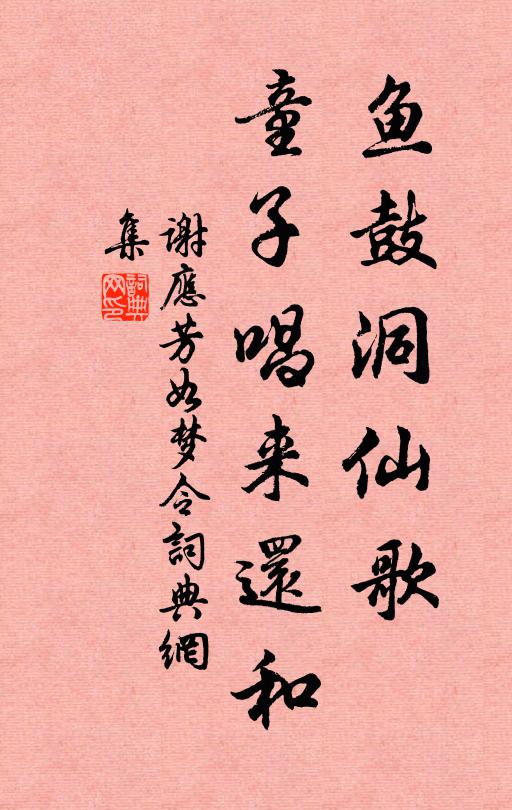 鱼鼓洞仙歌
童子唱来還和
谢應芳如梦令詞典網
集
詞典网印